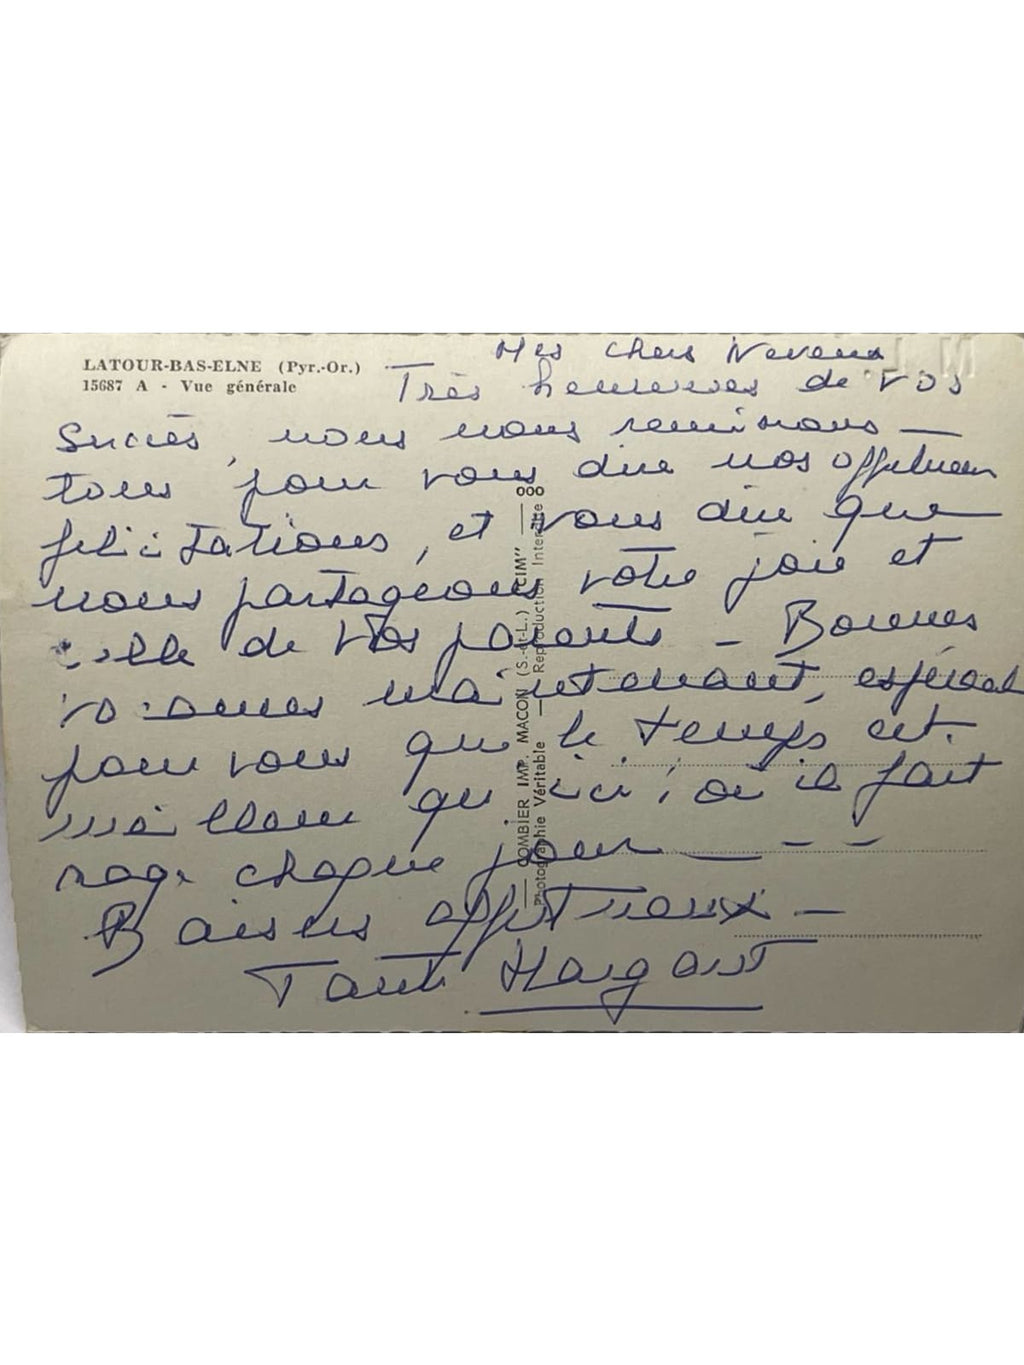 LATOUR-BAS-ELNE (Pyr.-Or.)
15687 A - Vue générale
Mes chers Neveux
Très heureuses de vos
succès, nous nous réunissons
tous pour vous dire nos affectueuses
félicitations, et vous dire que
nous partageons votre joie et
celle de vos parents - Bonnes
vacances maintenant, espérant
pour vous que le temps est
meilleur qu'ici, où il fait
rage chaque jour - - -
Baisers affectueux -
Tante Margarit
COMBIER IMP. MACON (S.-et-L.) "CIM"
Photographie Véritable — Reproduction Interdite